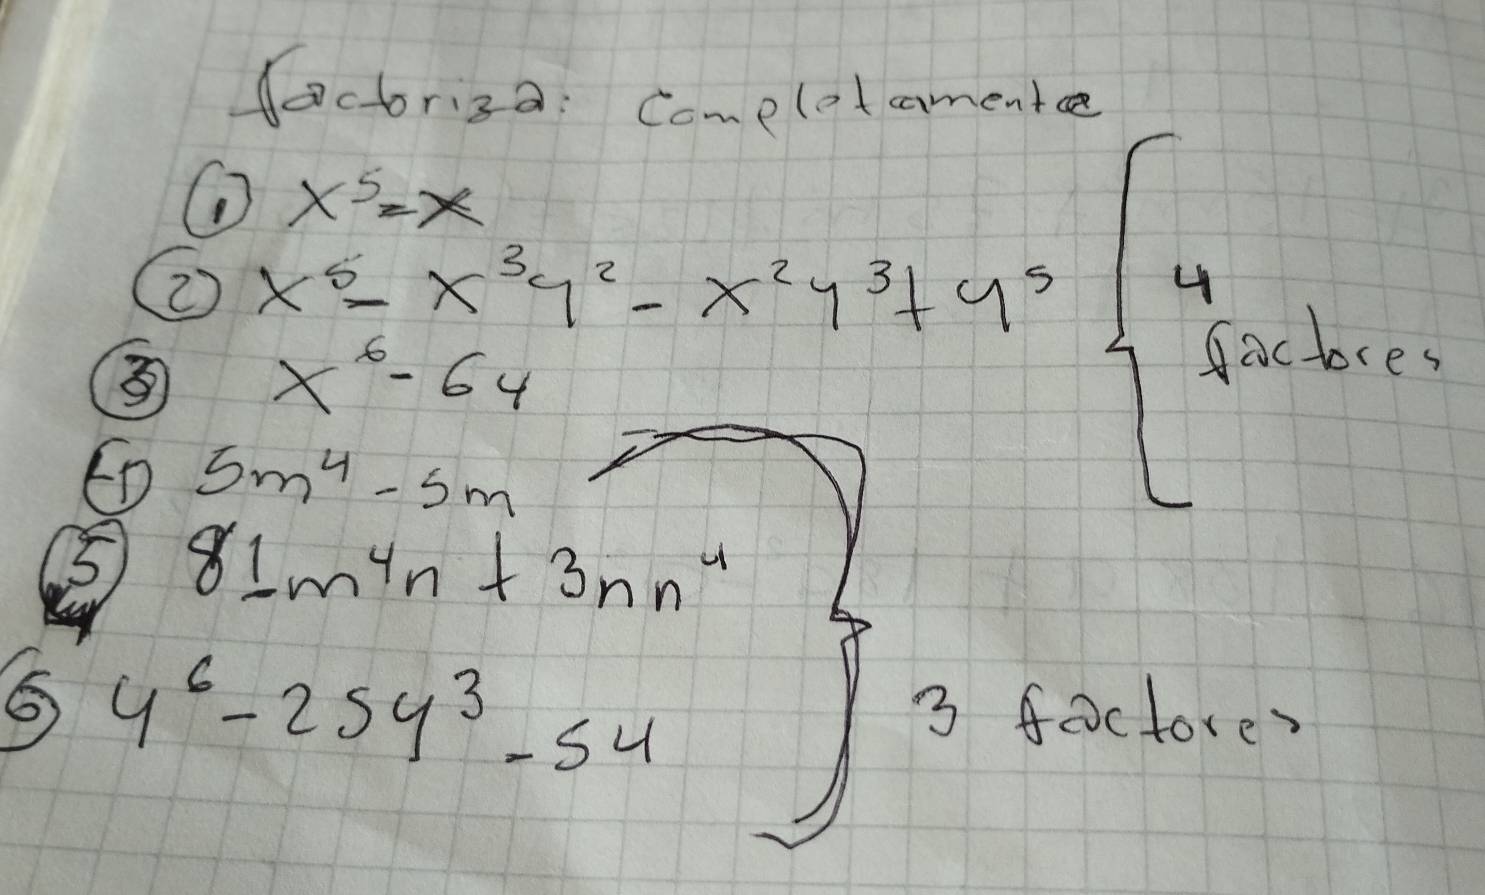 factoriza: Completamente
① x⁵-x
② x⁵- x³y² - x²y³+ y⁵
4
factores
③ x⁶- 64
④ 5m⁴ - 5m
⑤ 81m⁴n + 3nn⁴
⑥ y⁶ - 25y³ - 54
3 factores